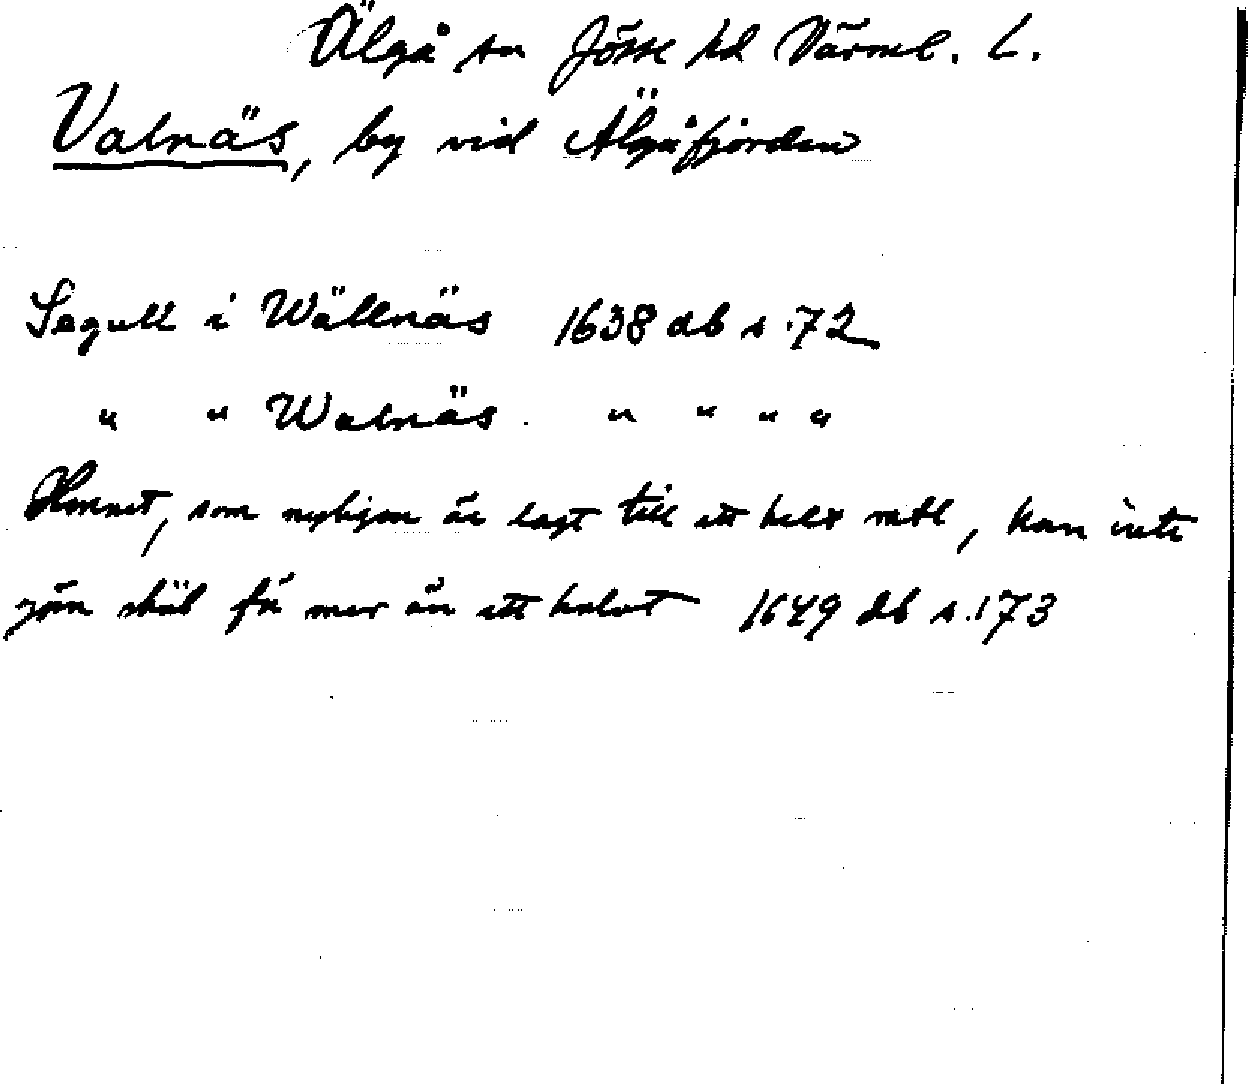 Älgå sn Jösse hd Värml. L.
Valnäs, by vid Älgåfjorden
Segull i Wällnäs 1638 db s. 72
" " Walnäs. " " " "
Hemmet, som nyligen är lagt till ett helt mtl, kan inte
göra skäl för mer än ett halvt 1649 db s. 173